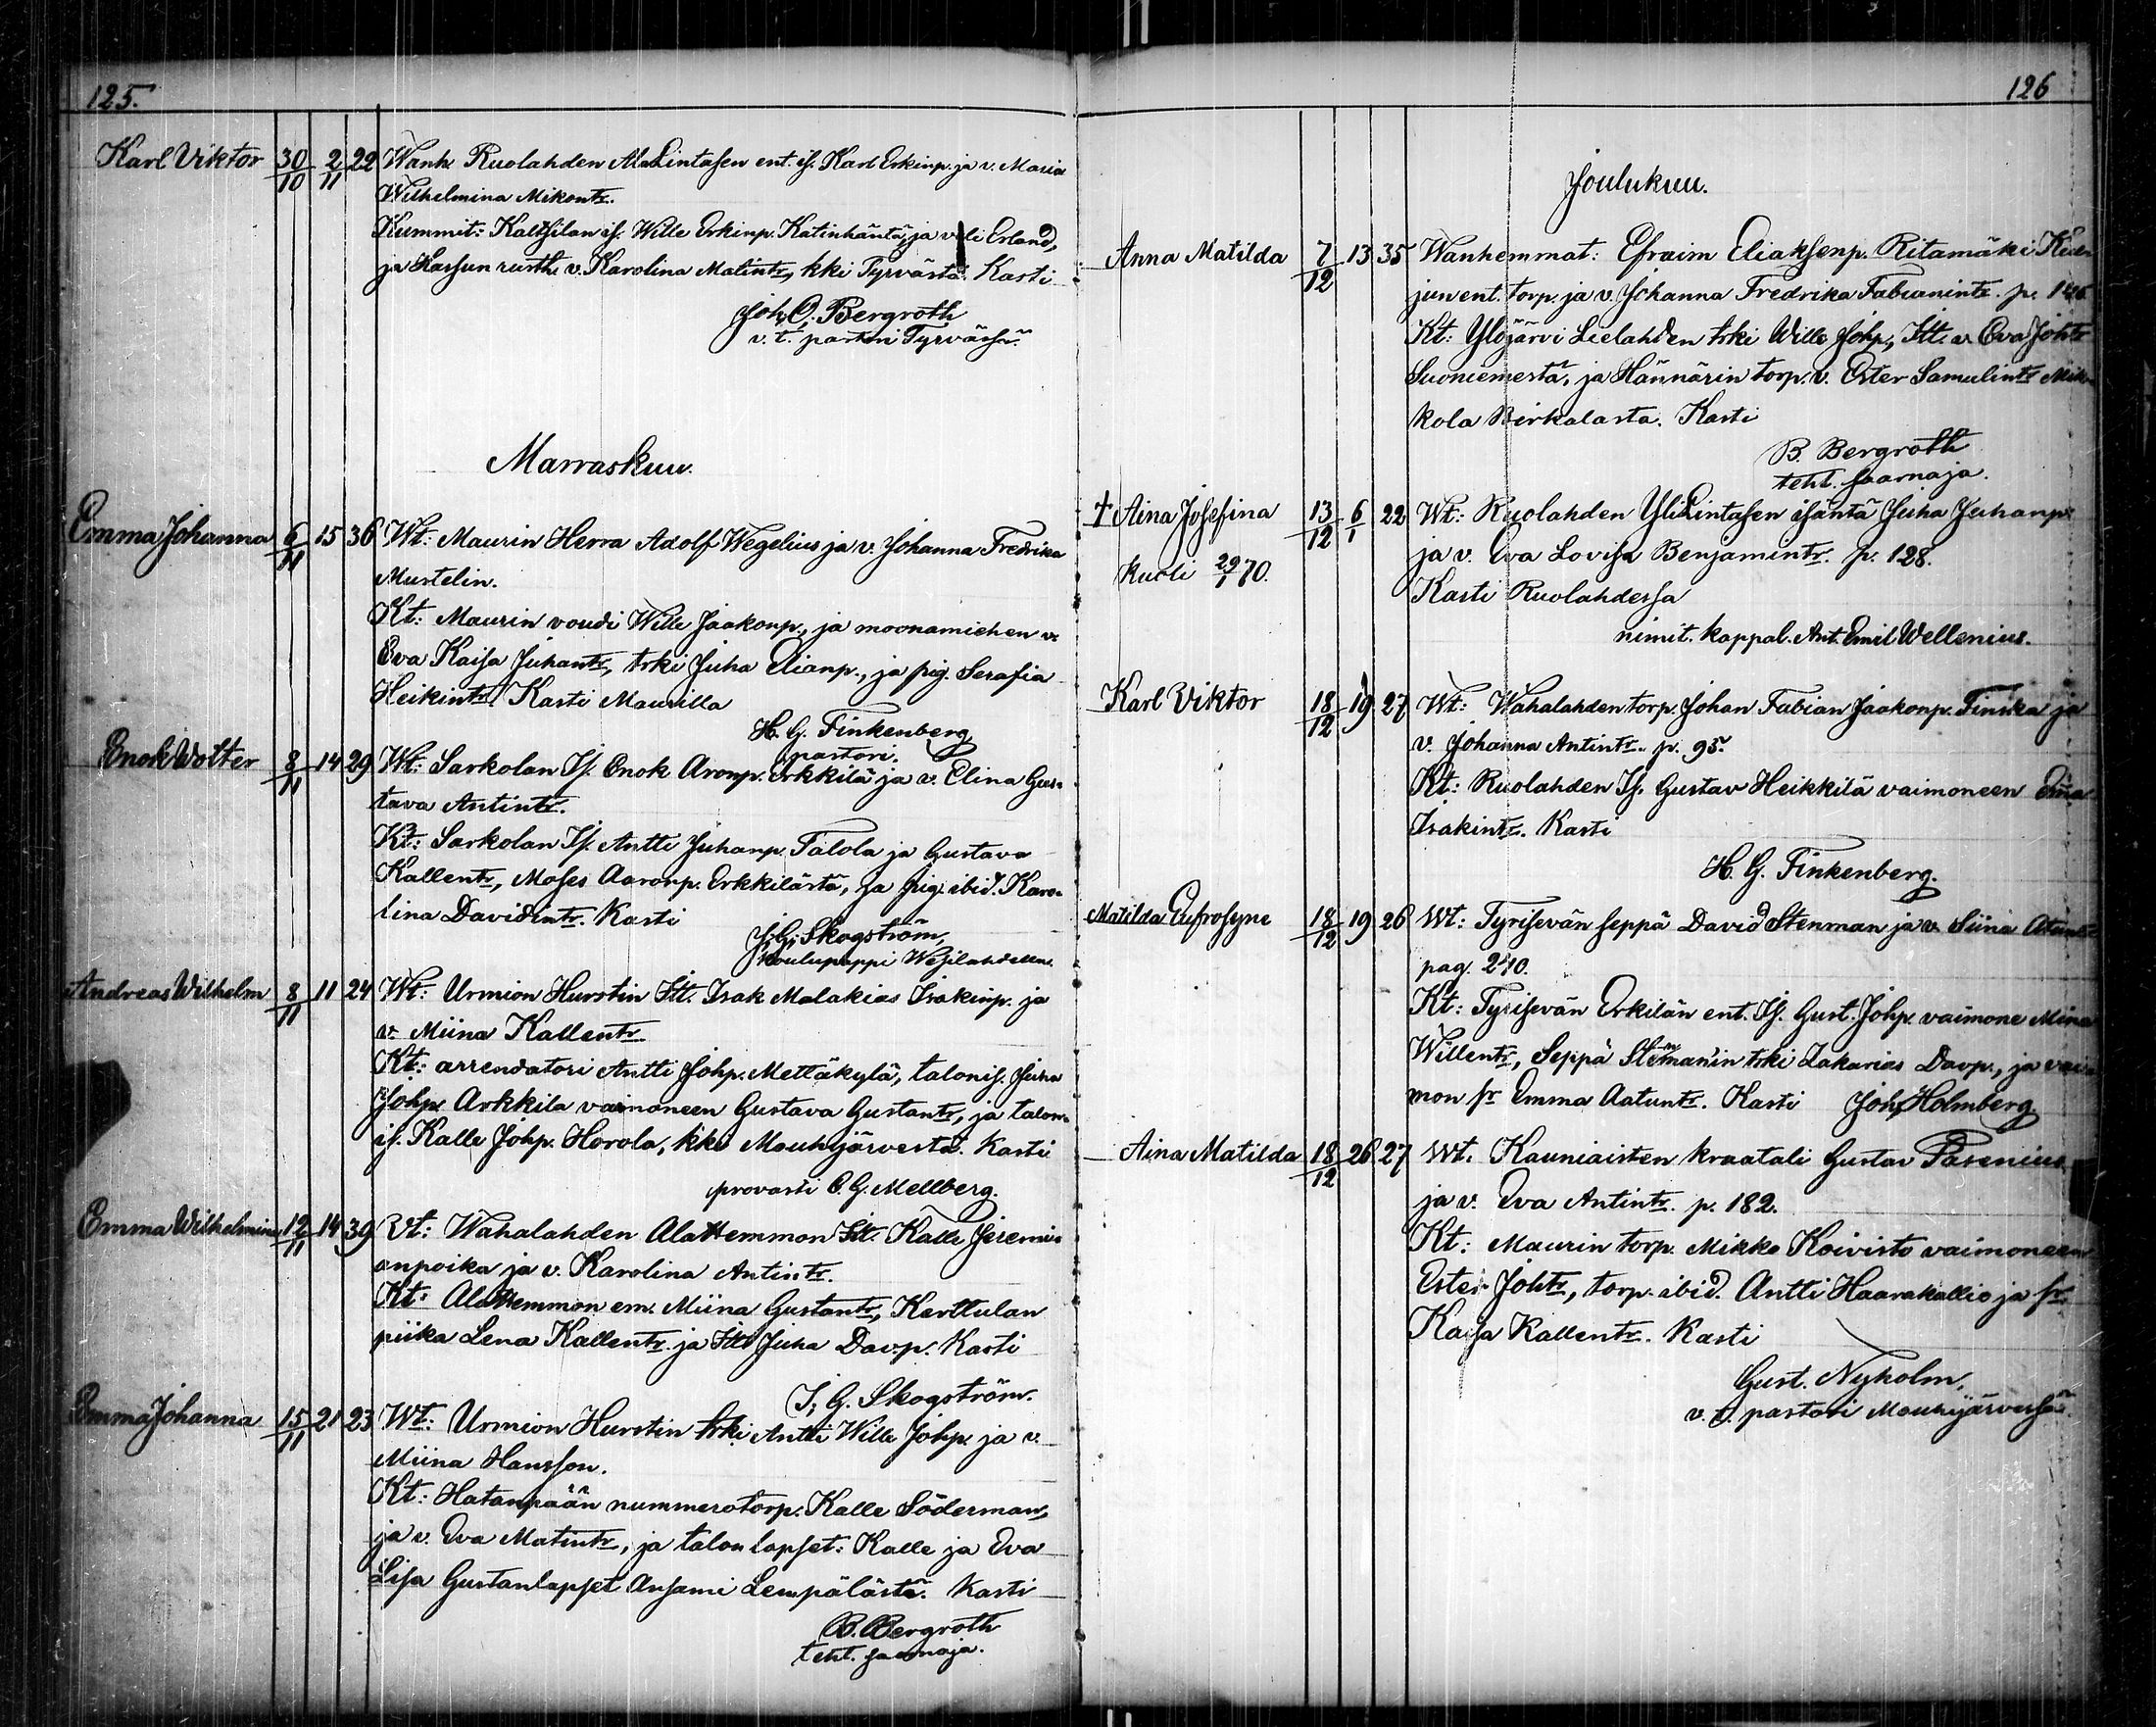 125.
Karl Viktor 30/10 2/11 22 Wanh. Ruolahden AlaLintasen ent. is. Karl Erkinp. ja v. Maria
Wilhelmina Mikontr.
Kummit: Kaltsilan is. Wille Erkinp. Katinhäntä, ja veli Erland,
ja Hassun rusth. v. Karolina Matintr, kki Tyrvästä. Kasti
Joh. O. Bergroth
v. t. pastori Tyrvässä.
Marraskuu.
Emma Johanna 6/11 15 36 Wt: Maurin Herra Adolf Wegelius ja v. Johanna Fredrika
Mustelin.
Kt: Maurin voudi Wille Jaakonp., ja moonamiehen v.
Eva Kaisa Juhantr, trki Juha Elianp., ja pig. Serafia
Heikintr. Kasti Maurilla
H. G. Finkenberg
pastori.
Enok Wolter 8/11 14 29 Wt: Sarkolan Is. Enok Aronp. Erkkilä ja v. Elina Gus-
tava Antintr.
Kt: Sarkolan Is. Antti Juhanp. Talola ja Gustava
Kallentr, Moses Aaronp. Erkkilästä, ja pig. ibid. Karo-
lina Davidintr. Kasti
J. G. Skogström,
koulupappi Wesilahdella.
Andreas Wilhelm 8/11 11 24 Wt: Urmion Hurstin Itt. Isak Malakias Isakinp. ja
v. Miina Kallentr
Kt: arrendatori Antti Johp. Mettäkylä, talonis. Juha
Johp. Arkkila vaimoneen Gustava Gustantr, ja talon-
is. Kalle Johp. Horola, kki Mouhijärvestä. Kasti
provasti C. G. Mellberg.
Emma Wilhelmina 12/11 14 39 Wt: Wahalahden AlaHemmon Itt. Kalle Jeremi-
anpoika ja v. Karolina Antintr.
Kt: AlaHemmon em. Miina Gustantr, Kerttulan
piika Lena Kallentr. ja Itts Juha Davp. Kasti
J. G. Skogström.
Emma Johanna 15/11 21 23 Wt: Urmion Hurstin trki Antti Wille Johp. ja v.
Miina Hansson.
Kt: Hatanpään nummerotorp. Kalle Söderman,
ja v. Eva Matintr, ja talon lapset: Kalle ja Eva
Lisa Gustanlapset Ansami Lempälästä. Kasti
B. Bergroth
teht. saarnaja.
126
Joulukuu.
Anna Matilda 7/12 13 35 Wanhemmat: Efraim Eliaksenp. Ritamäki
jun ent. torp. ja v. Johanna Fredrika Fabianintr. p. 146
Kt: Ylöjärvi Lielahden trki Wille Johp., Itt. v. Eva Johtr
Suoniemestä, ja Hännärin torp. v. Ester Samulintr Mik-
kola Birkalasta. Kasti
B. Bergroth
teht. saarnaja.
† Aina Josefina 13/12 6/1 22 Wt: Ruolahden YliLintasen isäntä Juha Juhanp.
kuoli 29/1 70. ja v. Eva Lovisa Benjamintr. p. 128.
Kasti Ruolahdessa
nimit. kappal. Ant. Emil Wellenius.
Karl Viktor 18/12 19 27 Wt: Wahalahden torp. Johan Fabian Jaakonp. Finska ja
v. Johanna Antintr. p. 95.
Kt: Ruolahden Is. Gustav Heikkilä vaimoneen
Isakintr. Kasti
H. G. Finkenberg.
Matilda Eufrosyne 18/12 19 26 Wt: Tyrisevän seppä David Stenman ja v. Siina
pag. 240.
Kt: Tyrisevän Erkilän ent. Is. Gust. Johp. vaimone Mina
Willentr, Seppä Stenman'in trki Zakarias Davp., ja vai-
mon sr Emma Aatuntr. Kasti Joh. Holmberg
Aina Matilda 18/12 26 27 Wt. Kauniaisten kraatali Gustav Pasenius
ja v. Eva Antintr. p. 182.
Kt: Maurin torp. Mikko Koivisto vaimoneen
Ester Johtr, torp. ibid. Antti Haarakallio ja sr.
Kaisa Kallentr. Kasti
Gust. Nyholm,
v. t. pastori Mouhijärvessä.